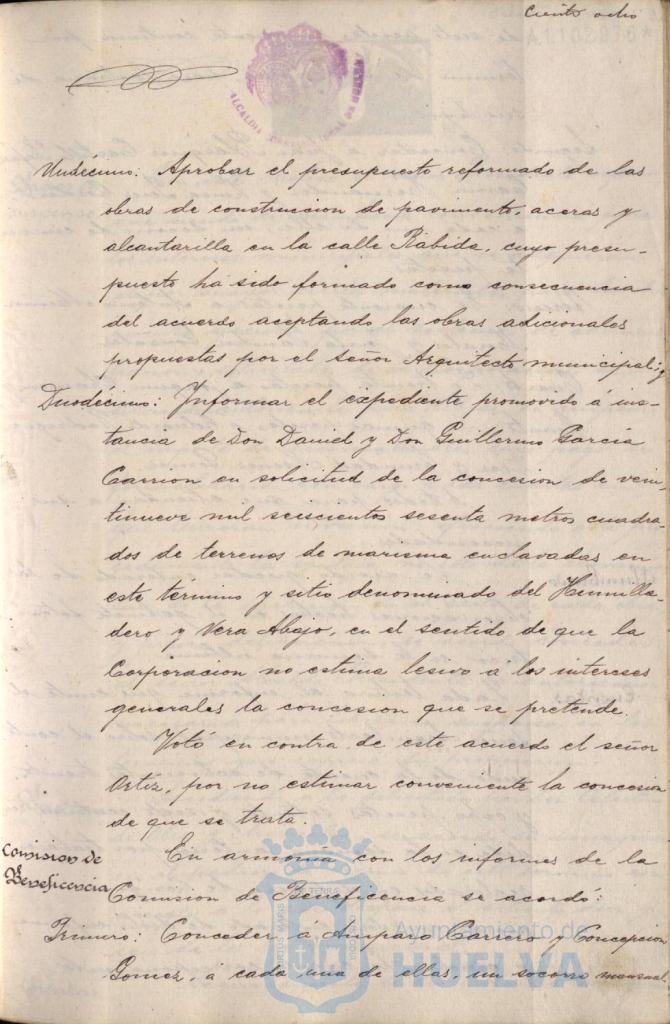 Ciento ocho
ALCALDIA
Undécimo: Aprobar el presupuesto reformado de las
obras de construccion de pavimento, aceras y
alcantarilla en la calle Rábida, cuyo presu-
puesto ha sido formado como consecuencia
del acuerdo aceptando las obras adicionales
propuestas por el señor Arquitecto municipal; y
Duodécimo: Informar el expediente promovido á ins-
tancia de Don David y Don Guillermo García
Carrion en solicitud de la concesion de vein-
tinueve mil seiscientos sesenta metros cuadra-
dos de terrenos de marisma enclavadas en
este término y sitio denominado del Humilla-
dero y Vera Abajo, en el sentido de que la
Corporacion no estima lesivo á los intereses
generales la concesion que se pretende.
Votó en contra de este acuerdo el señor
Ortiz, por no estimar conveniente la concesion
de que se trata.
Comision de
Beneficencia
En armonía con los informes de la
Comision de Beneficencia se acordó:
Primero: Conceder á Amparo Carrero y Concepcion
Gomez, á cada una de ellas, un socorro mensual
Ayuntamiento de
HUELVA